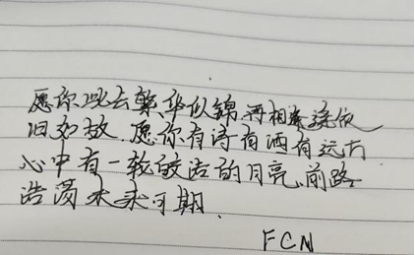 愿你此去繁华似锦,再相逢依
旧如故.愿你有诗有酒有远方
心中有一轮皎洁的月亮,前路
浩荡未来可期.
FCN